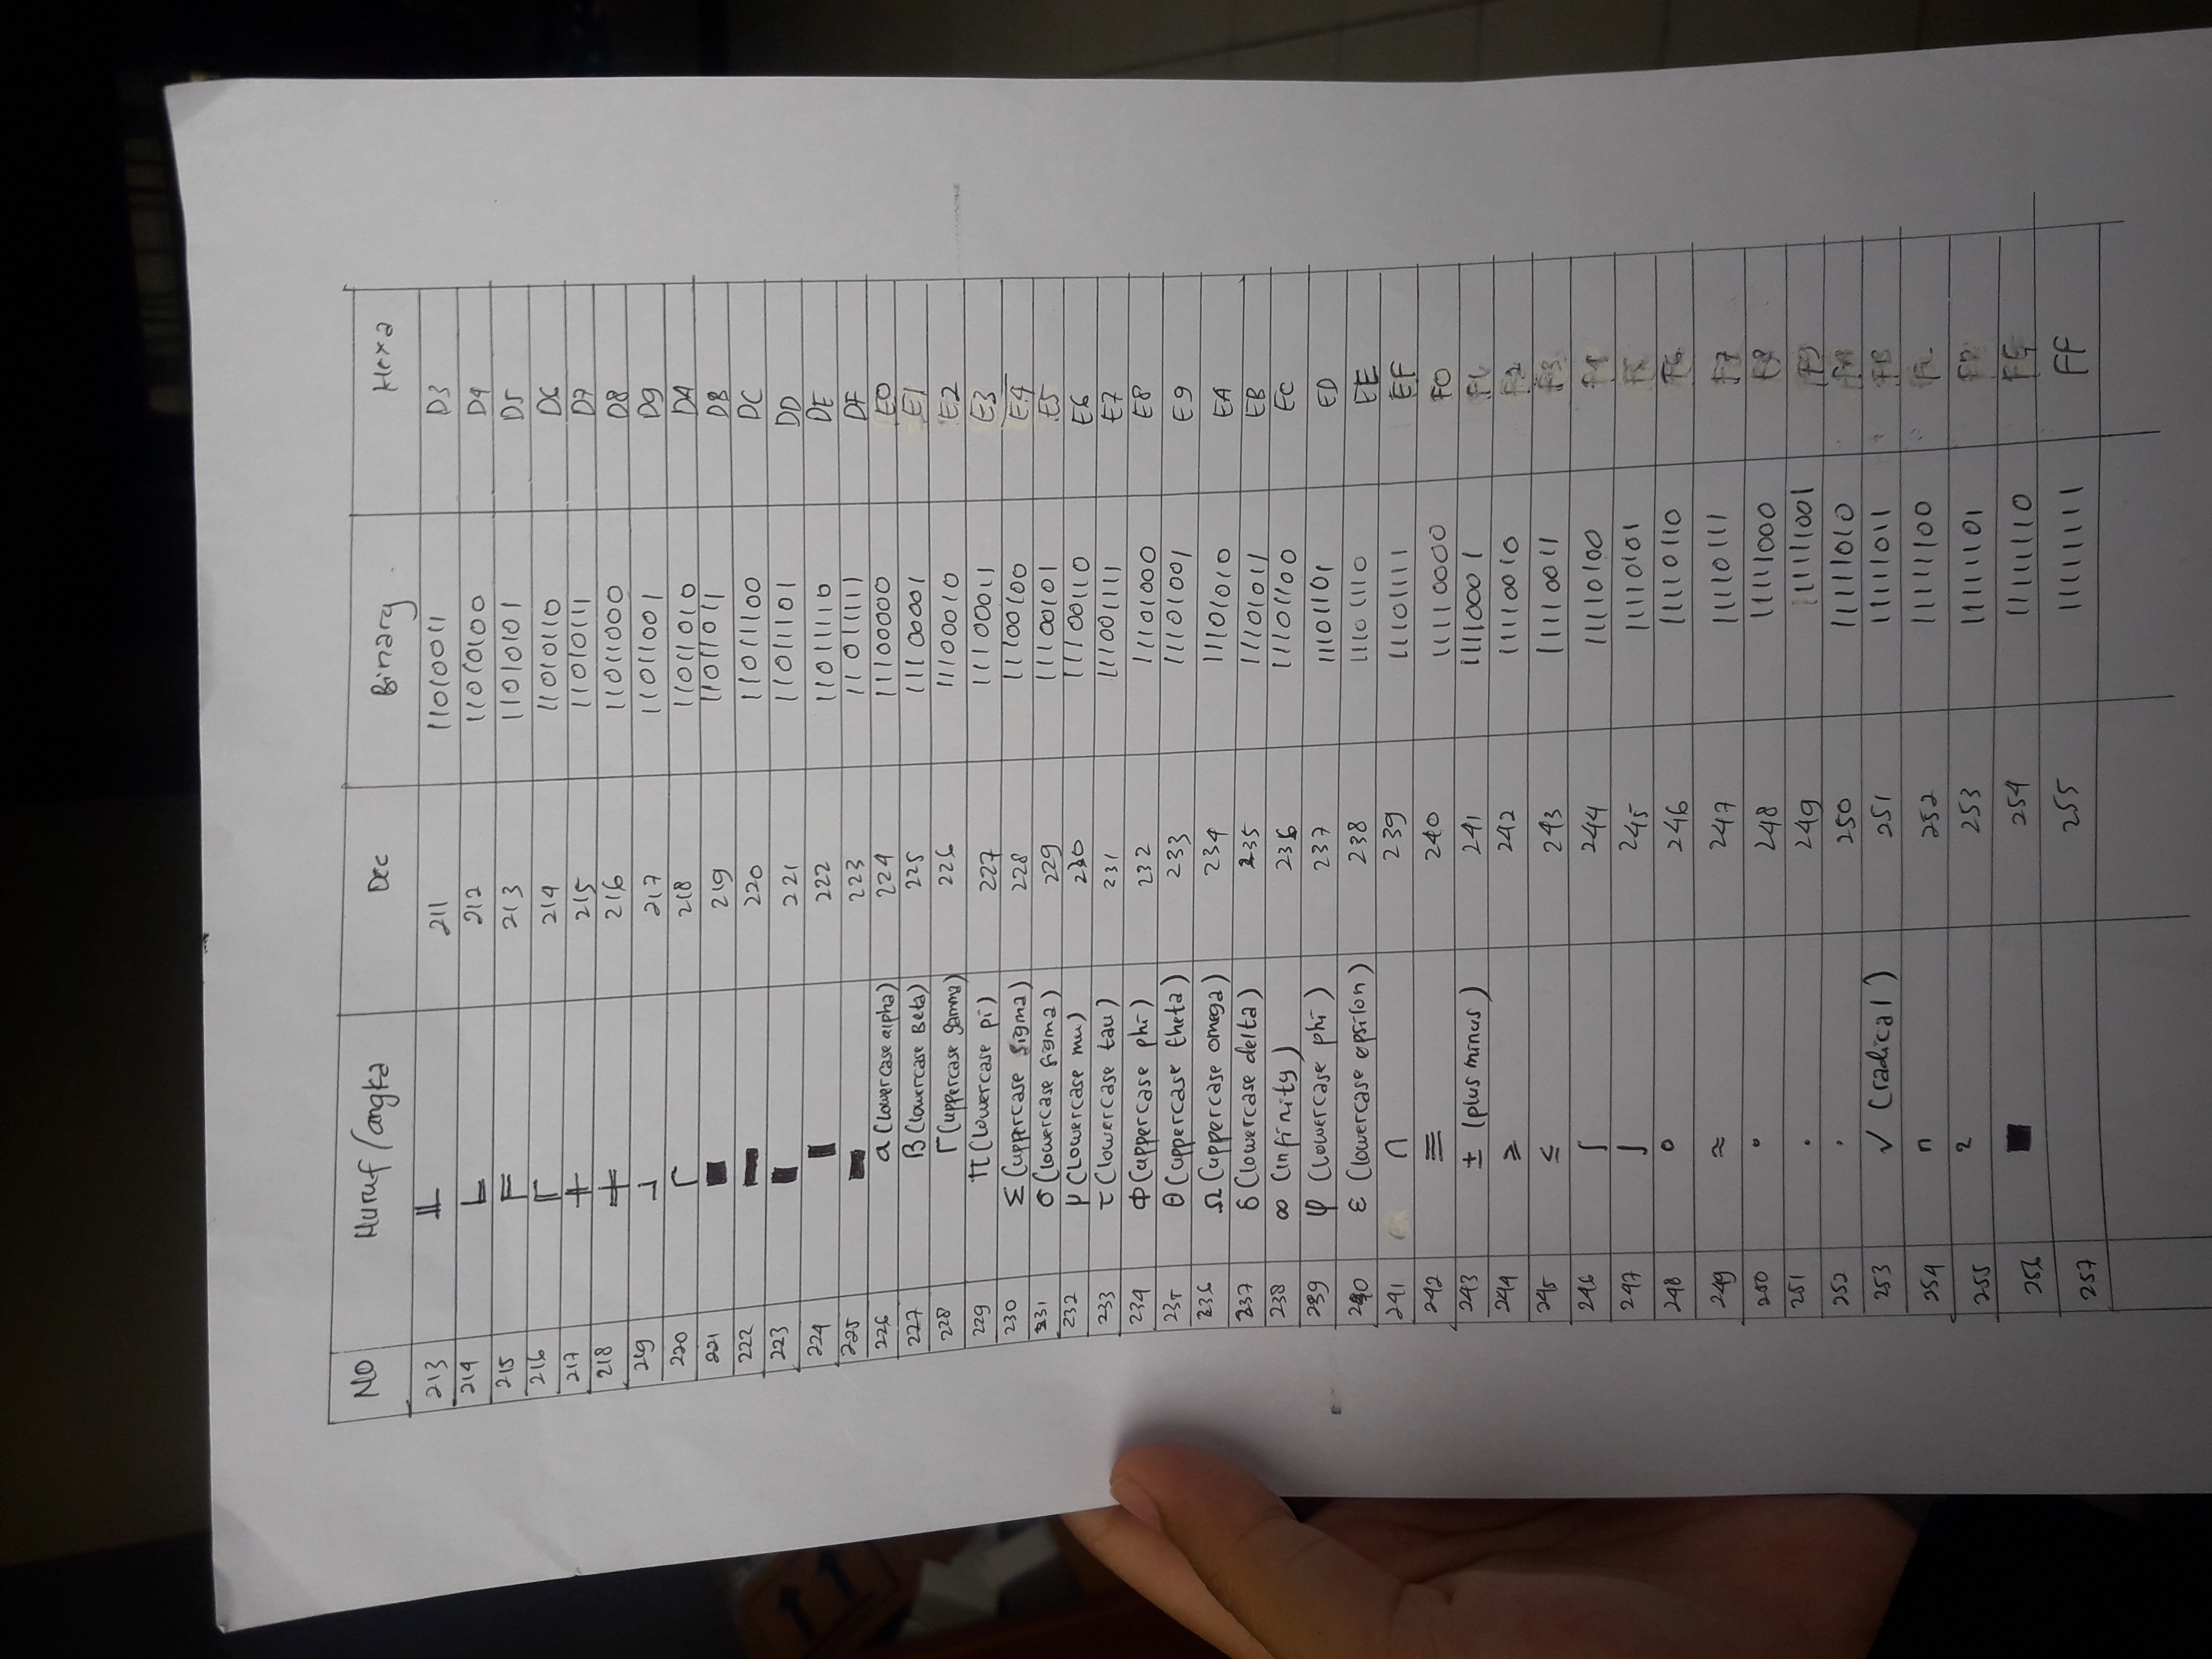 No Huruf/angka Dec Binary Hexa
213 ╨ 211 11010011 D3
214 ╘ 212 11010100 D4
215 ╒ 213 11010101 D5
216 ╓ 214 11010110 D6
217 ╫ 215 11010111 D7
218 ╪ 216 11011000 D8
219 ┘ 217 11011001 D9
220 ┌ 218 11011010 DA
221 █ 219 11011011 DB
222 ▄ 220 11011100 DC
223 ▌ 221 11011101 DD
224 ▐ 222 11011110 DE
225 ▀ 223 11011111 DF
226 α (lowercase alpha) 224 11100000 E0
227 β (lowercase Beta) 225 11100001 E1
228 Γ (uppercase gamma) 226 11100010 E2
229 π (lowercase pi) 227 11100011 E3
230 Σ (uppercase sigma) 228 11100100 E4
231 σ (lowercase sigma) 229 11100101 E5
232 μ (lowercase mu) 230 11100110 E6
233 τ (lowercase tau) 231 111001111 E7
234 Φ (uppercase phi) 232 11101000 E8
235 Θ (uppercase theta) 233 11101001 E9
236 Ω (uppercase omega) 234 11101010 EA
237 δ (lowercase delta) 235 11101011 EB
238 ∞ (infinity) 236 11101100 EC
239 φ (lowercase phi) 237 11101101 ED
240 ε (lowercase epsilon) 238 11101110 EE
241 ∩ 239 11101111 EF
242 ≡ 240 11110000 F0
243 ± (plus minus) 241 11110001 F1
244 ≥ 242 11110010 F2
245 ≤ 243 11110011 F3
246 ⌠ 244 11110100 F4
247 ⌡ 245 11110101
248 ° 246 11110110 F6
249 ≈ 247 11110111 F7
250 ° 248 11111000 F8
251 . 249 11111001 F9
252 · 250 11111010
253 √ (radical) 251 11111011 FB
254 n 252 11111100
255 2 253 11111101 FD
256 ■ 254 11111110 FE
257 255 11111111 FF